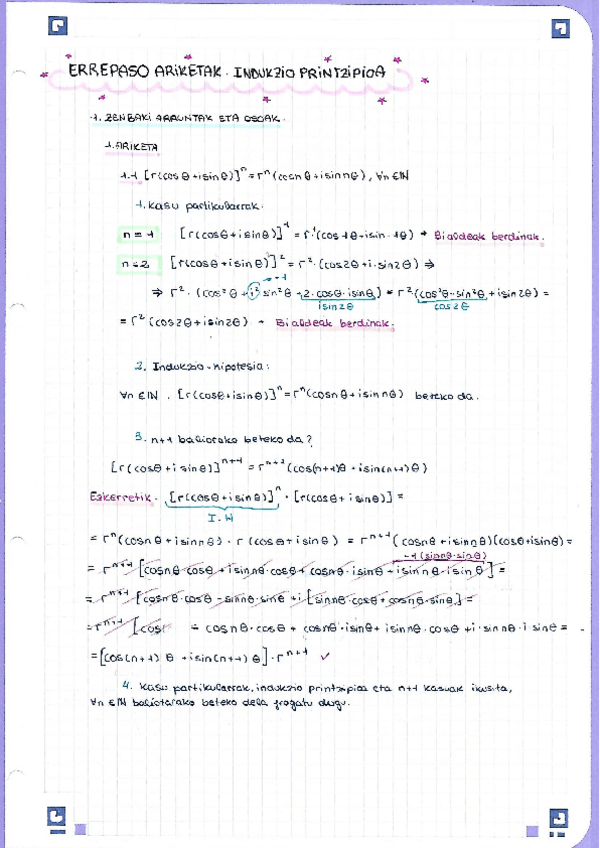 ERREPASO ARIKETAK. INDUKZIO PRINTZIPIOA
1. ZENBAKI ARRUNTAK ETA OSOAK.
1. ARIKETA
1.1 [r(cosθ+isinθ)]^n = r^n(cosnθ+isinnθ), ∀n∈ℕ
1. Kasu partikularrak.
n=1 [r(cosθ+isinθ)]^1 = r^1(cos1θ+isin·1θ) → Bi aldeak berdinak.
n=2 [r(cosθ+isinθ)]^2 = r^2·(cos2θ+i·sin2θ) ⇒
-1
⇒ r^2·(cos^2θ+i^2sin^2θ+2·cosθ·isinθ) = r^2(cos^2θ-sin^2θ+isin2θ) =
isin2θ cos2θ
= r^2(cos2θ+isin2θ) → Bi aldeak berdinak.
2. Indukzio-hipotesia:
∀n∈ℕ. [r(cosθ+isinθ)]^n = r^n(cosnθ+isinnθ) beteko da.
3. n+1 baliorako beteko da?
[r(cosθ+isinθ)]^n+1 = r^n+1(cos(n+1)θ+isin(n+1)θ)
Ezkerretik. [r(cosθ+isinθ)]^n · [r(cosθ+isinθ)] =
I.H
= r^n(cosnθ+isinnθ)·r(cosθ+isinθ) = r^n+1(cosnθ+isinnθ)(cosθ+isinθ) =
-1(sinnθ·sinθ)
= r^n+1[cosnθ·cosθ+isinnθ·cosθ+cosnθ·isinθ+isinnθ·isinθ] =
= r^n+1[cosnθ·cosθ-sinnθ·sinθ+i[sinnθ·cosθ+cosnθ·sinθ] =
= r^n+1[cos( = cosnθ·cosθ+cosnθ·isinθ+isinnθ·cosθ+i·sinnθ·isinθ =
= [cos(n+1)θ+isin(n+1)θ]·r^n+1 ✓
4. Kasu partikularrak, indukzio printzipioa eta n+1 kasuak ikusita,
∀n∈ℕ baliotarako beteko dela frogatu dugu.